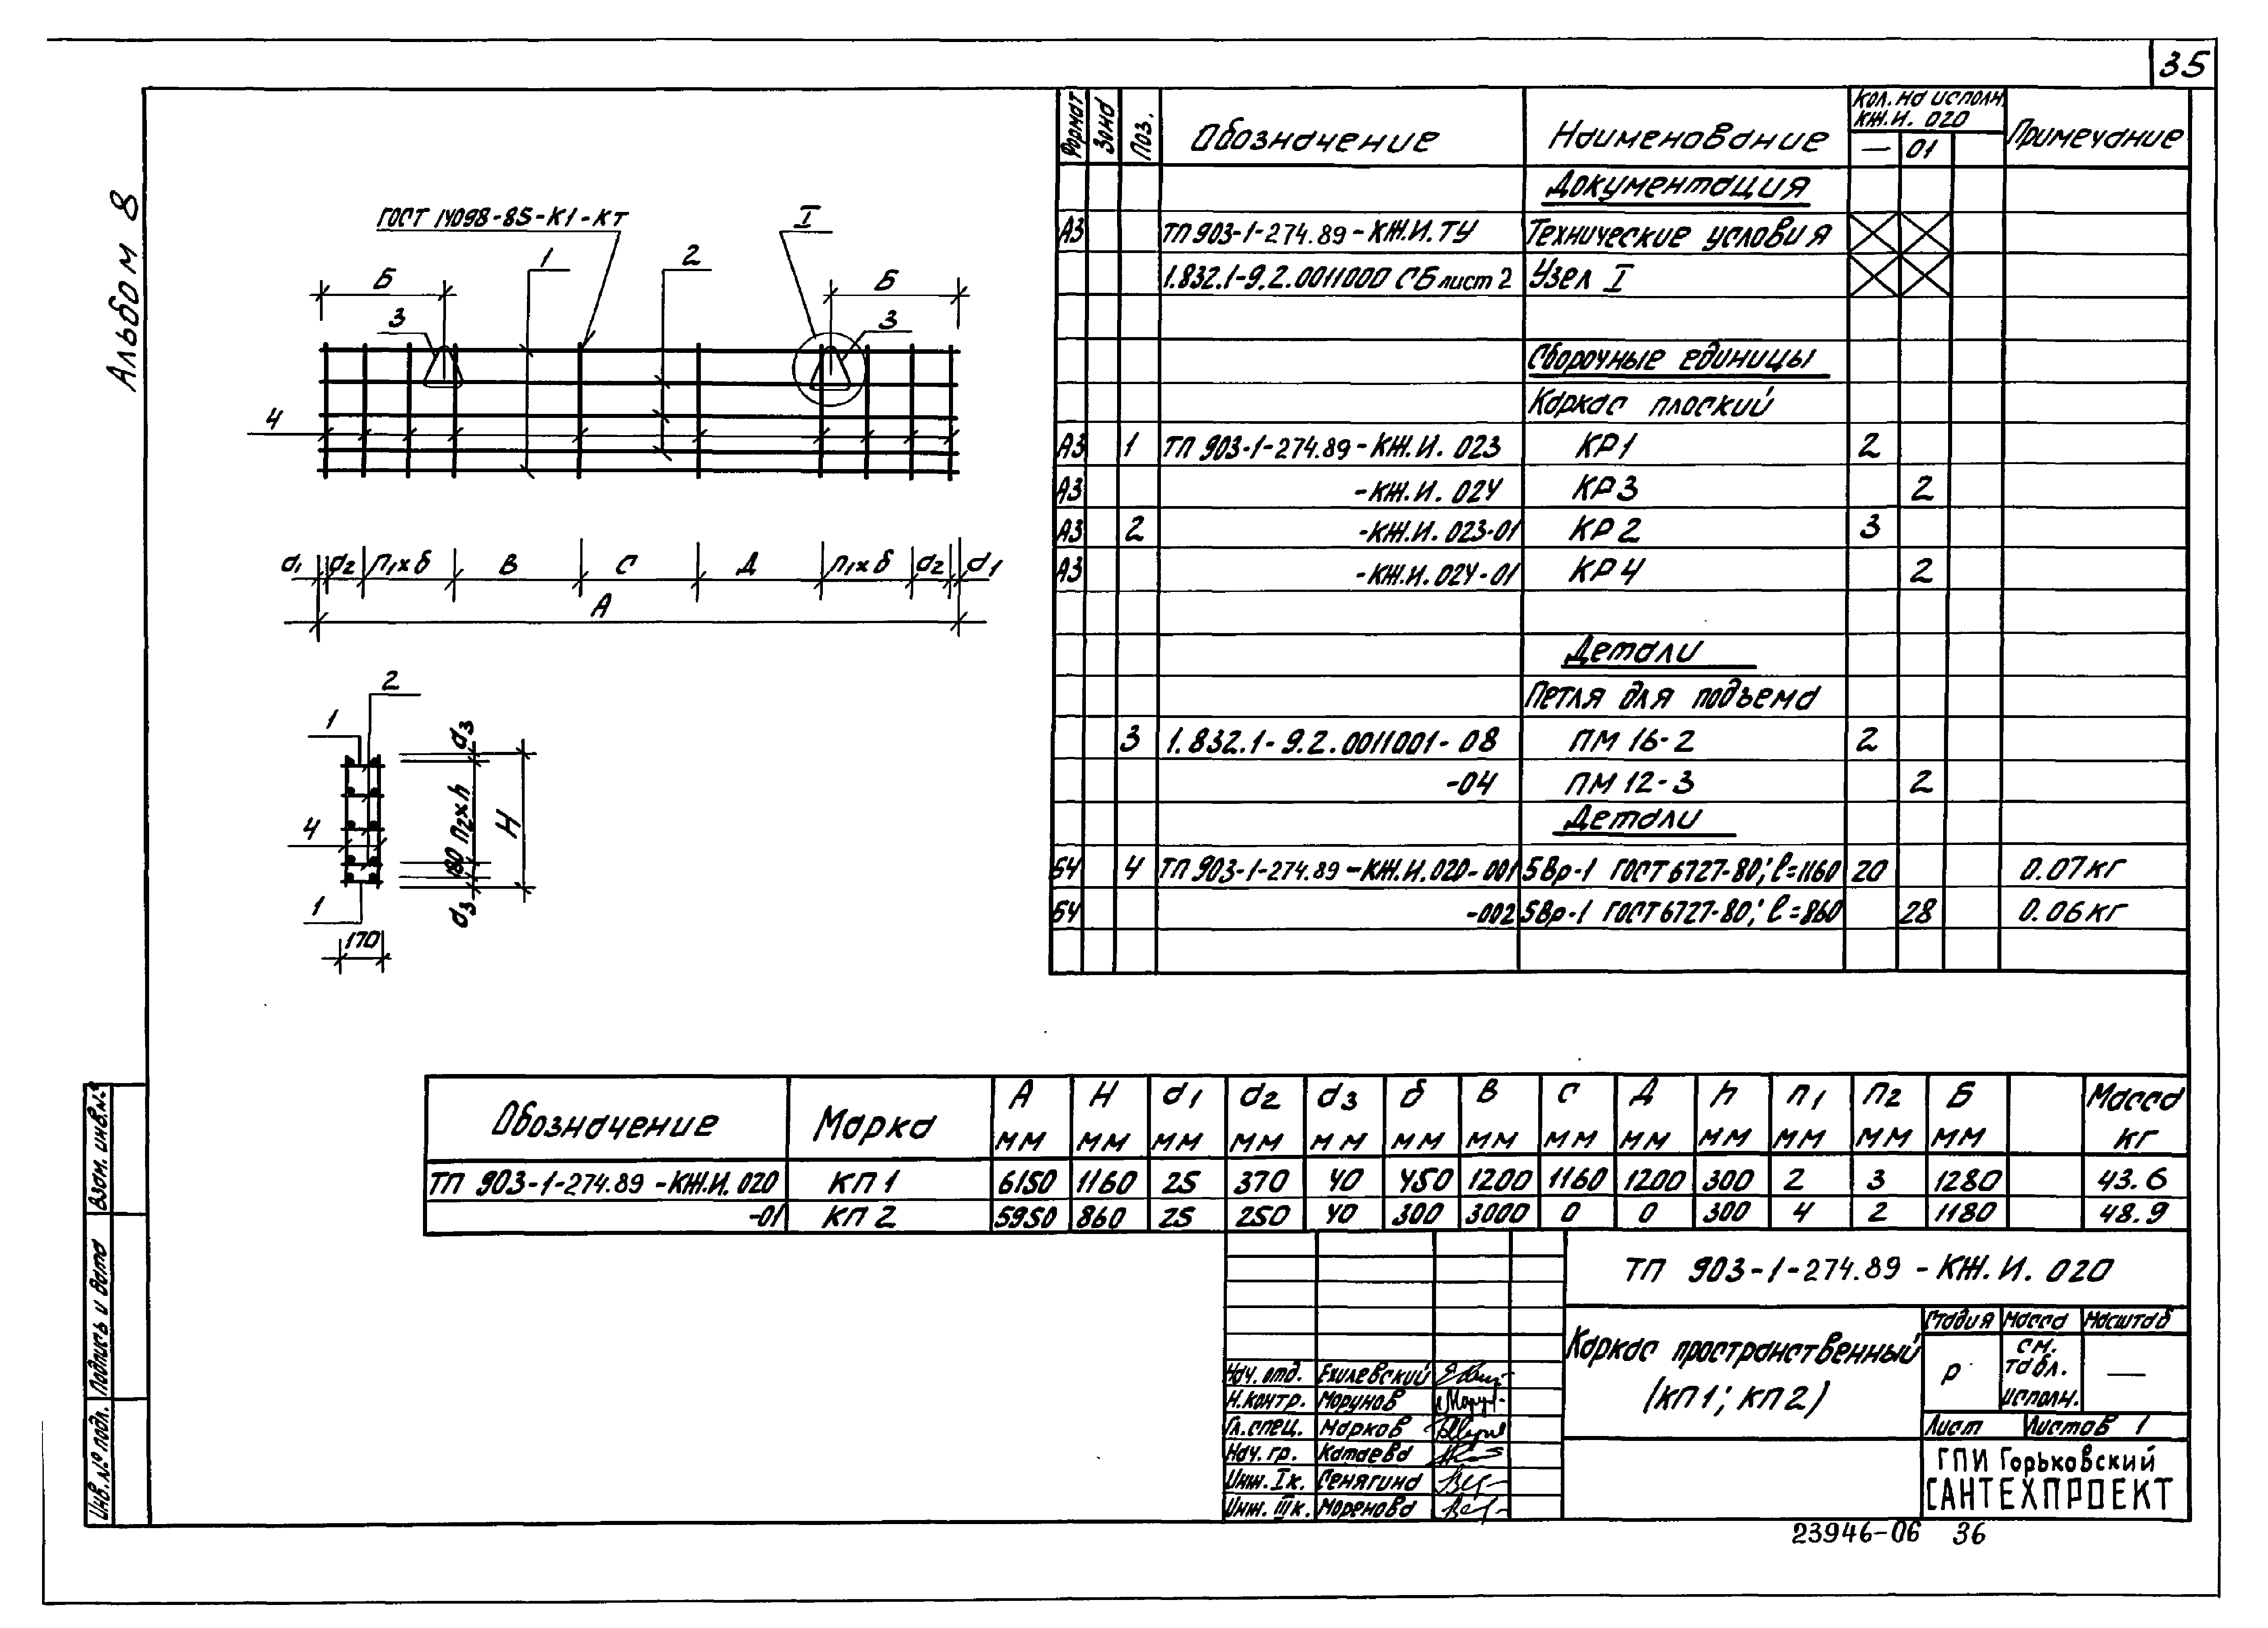 35
Альбом 8
ГОСТ 14098-85-К1-Кт
I
1
2
Б
Б
3
3
4
d1 d2 n1×б В С Д n1×б d2 d1
А
2
1
d3
180 n2×h
Н
4
1
d3
170
Формат Зона Поз. Обозначение Наименование Кол. на исполн. КЖ.И. 020 Примечание
— 01
Документация
А3 ТП 903-1-274.89-КЖ.И.ТУ Технические условия
1.832.1-9.2.0011000 СБ лист 2 Узел I
Сборочные единицы
Каркас плоский
А3 1 ТП 903-1-274.89-КЖ.И. 023 КР1 2
А3 -КЖ.И. 024 КР3 2
А3 2 -КЖ.И. 023-01 КР2 3
А3 -КЖ.И. 024-01 КР4 2
Детали
Петля для подъема
3 1.832.1-9.2.0011001-08 ПМ 16-2 2
-04 ПМ 12-3 2
Детали
БЧ 4 ТП 903-1-274.89-КЖ.И.020-001 5Вр-1 ГОСТ 6727-80; ℓ=1160 20 0.07кг
БЧ -002 5Вр-1 ГОСТ 6727-80; ℓ=860 28 0.06кг
Обозначение Марка А мм Н мм d1 мм d2 мм d3 мм б мм В мм С мм Д мм h мм n1 мм n2 мм Б мм Масса кг
ТП 903-1-274.89-КЖ.И. 020 КП1 6150 1160 25 370 40 450 1200 1160 1200 300 2 3 1280 43.6
-01 КП2 5950 860 25 250 40 300 3000 0 0 300 4 2 1180 48.9
ТП 903-1-274.89-КЖ.И. 020
Каркас пространственный
(КП1; КП2)
Стадия Масса Масштаб
Р см. табл. исполн. —
Лист Листов 1
ГПИ Горьковский
САНТЕХПРОЕКТ
Нач. отд. Ехилевский
Н.контр. Морунов
Гл.спец. Марков
Нач. гр. Катаева
Инж. Iк. Сенягина
Инж. IIIк. Моренова
Взам. инв.№
Подпись и дата
Инв.№ подл.
23946-06 36